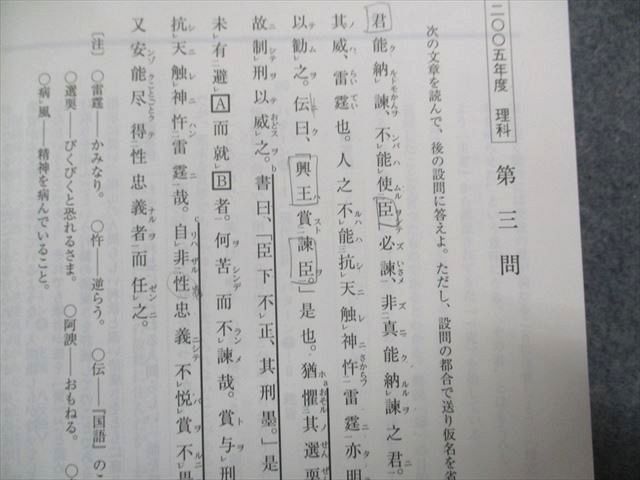 二〇〇五年度 理科
第三問
次の文章を読んで、後の設問に答えよ。ただし、設問の都合で送り仮名を省
君能納諫、不能使臣必諫、非真能納諫之君。
其威、雷霆也。人之不能抗天触神忤雷霆亦明
以勧之。伝曰、「興王賞諫臣。」是也。猶懼其選耎
故制刑以威之。書曰、「臣下不正、其刑墨。」是
未有避A而就B者。何苦而不諫哉。賞与刑
抗天触神忤雷霆哉。自非性忠義不悦賞不畏
又安能尽得性忠義者而任之。
〔注〕 〇雷霆――かみなり。 〇忤――逆らう。 〇伝――『国語』の
〇選耎――びくびくと恐れるさま。 〇阿諛――おもねる。
〇病風――精神を病んでいること。